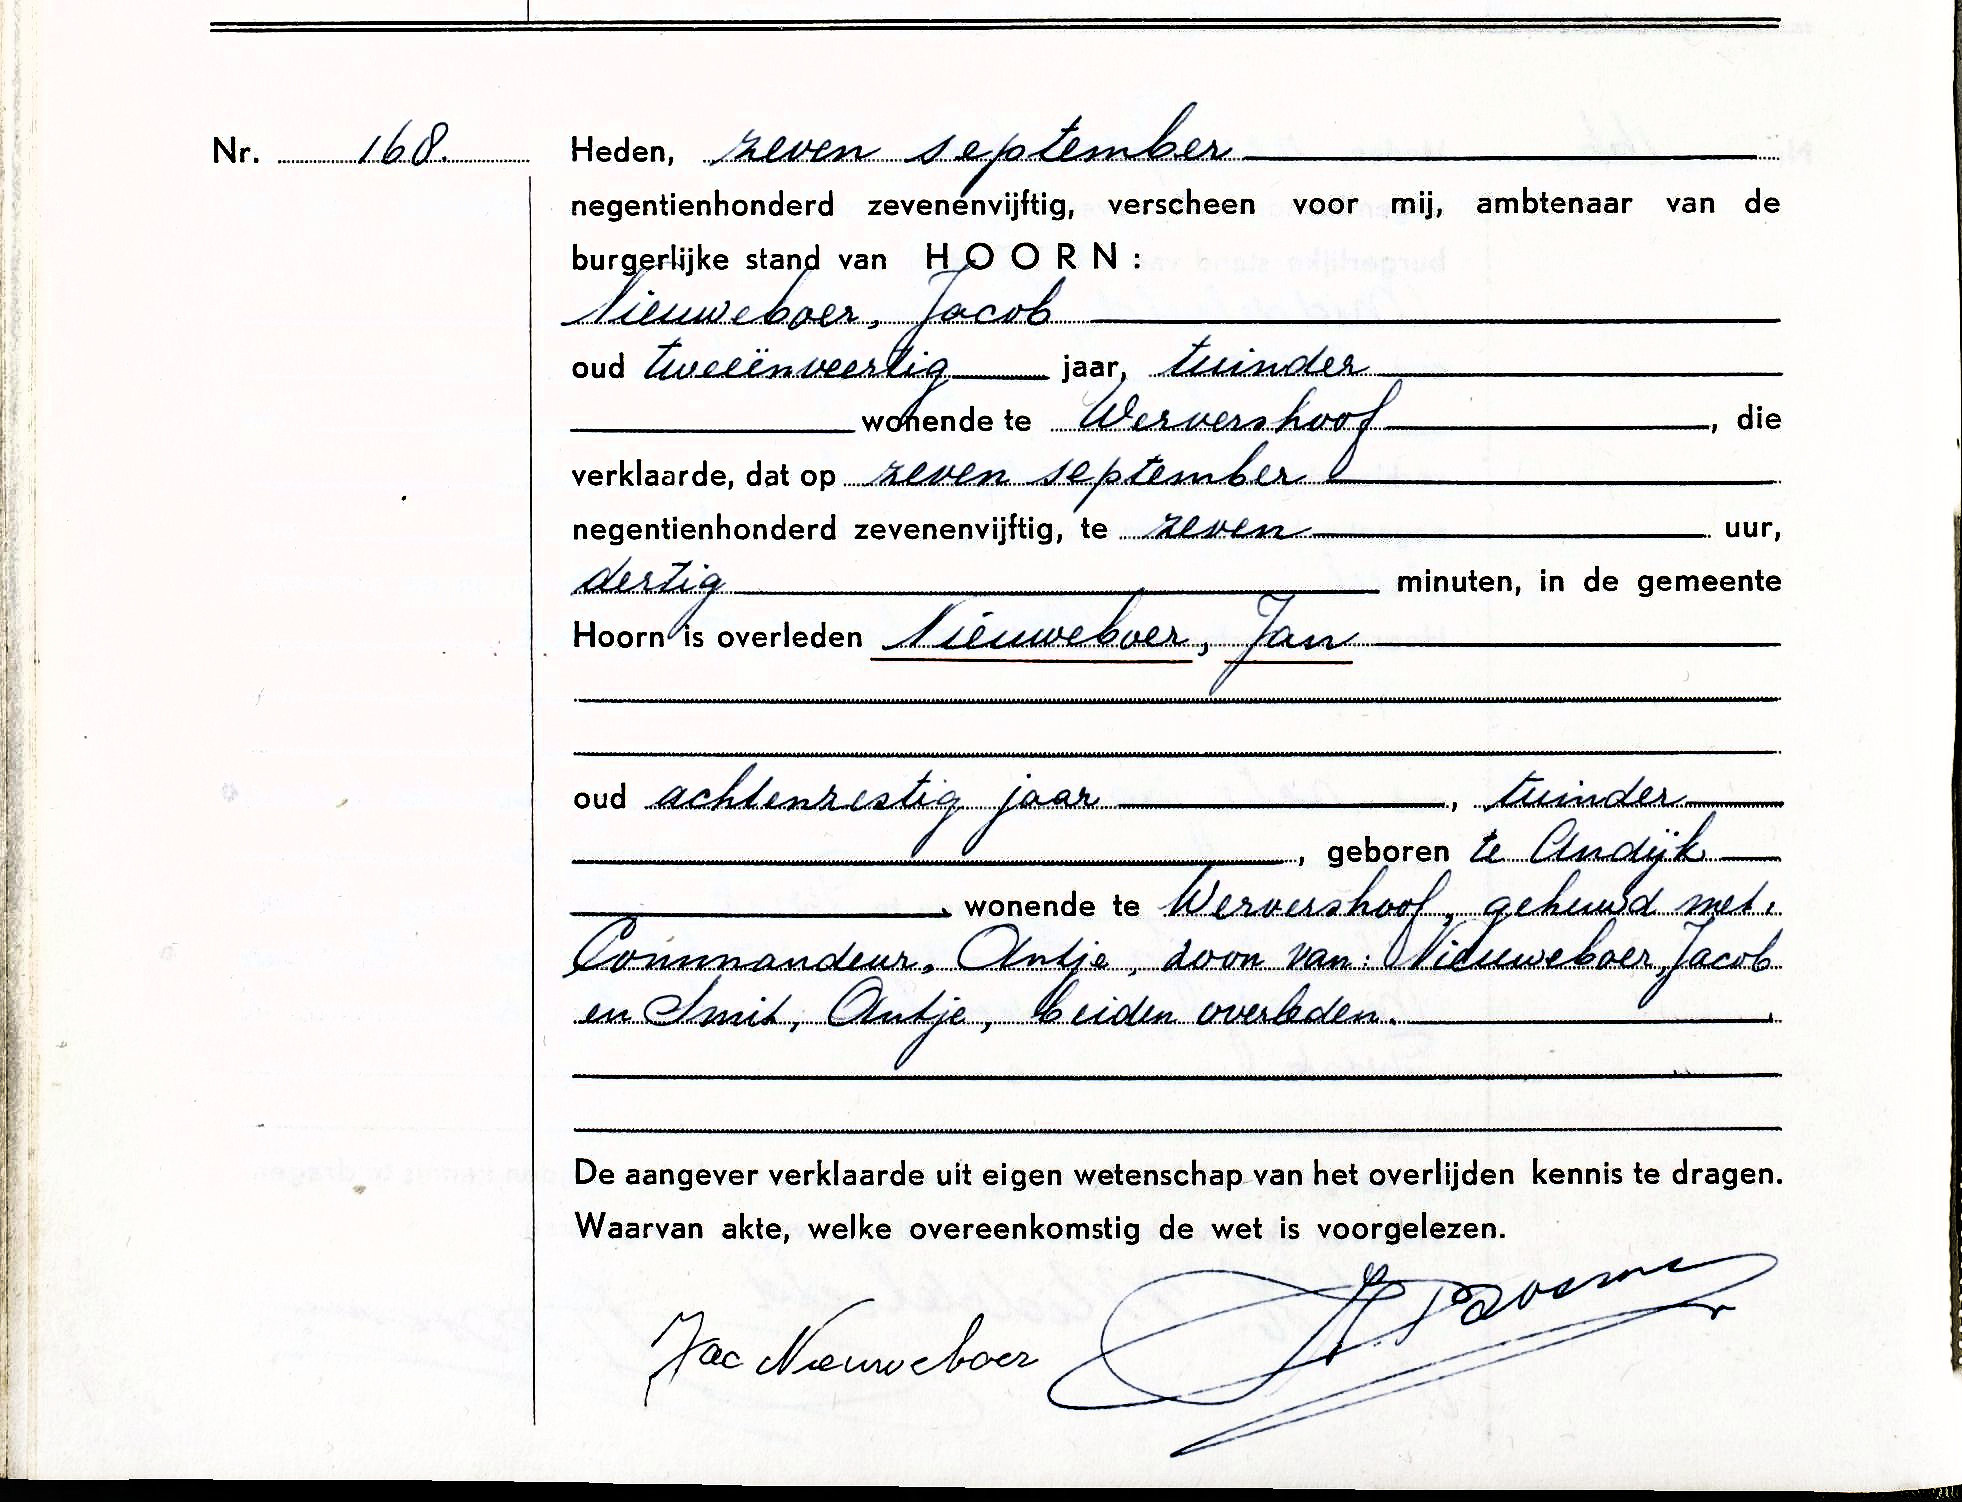 Nr. 168. Heden, zeven september
negentienhonderd zevenenvijftig, verscheen voor mij, ambtenaar van de
burgerlijke stand van HOORN:
Nieuweboer, Jacob
oud tweeënveertig jaar, tuinder
wonende te Wervershoof, die
verklaarde, dat op zeven september
negentienhonderd zevenenvijftig, te zeven uur,
dertig minuten, in de gemeente
Hoorn is overleden Nieuweboer, Jan
oud achtenzestig jaar, tuinder
, geboren te Andijk
, wonende te Wervershoof, gehuwd met.
Commandeur, Antje, zoon van: Nieuweboer, Jacob
en Smit, Antje, beiden overleden.
De aangever verklaarde uit eigen wetenschap van het overlijden kennis te dragen.
Waarvan akte, welke overeenkomstig de wet is voorgelezen.
Jac Nieuweboer